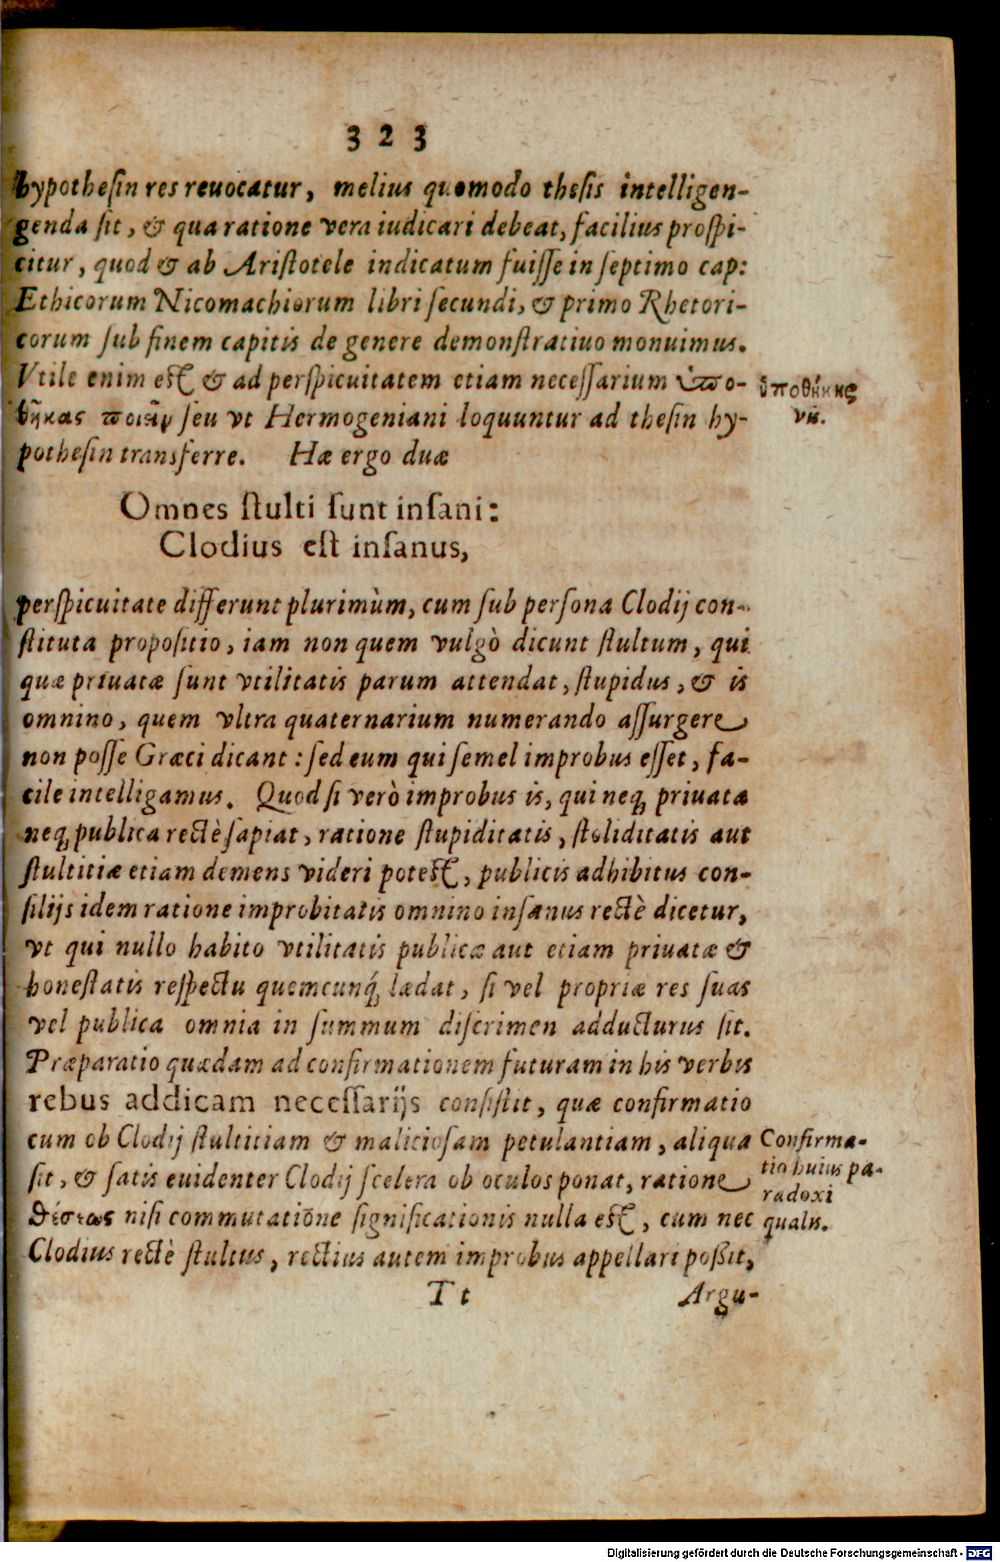 323
hypotheſin res reuocatur, melius quomodo theſis intelligen-
genda ſit, & qua ratione vera iudicari debeat, facilius proſpi-
citur, quod & ab Ariſtotele indicatum fuiſſe in ſeptimo cap:
Ethicorum Nicomachiorum libri ſecundi, & primo Rhetori-
corum ſub finem capitis de genere demonſtratiuo monuimus.
Vtile enim eſt & ad perſpicuitatem etiam neceſſarium ὑπο-
θήκας ποιεῖν ſeu vt Hermogeniani loquuntur ad theſin hy-
potheſin transferre. Hæ ergo duæ
ὑποθήκης
Omnes ſtulti ſunt inſani:
Clodius eſt inſanus,
perſpicuitate differunt plurimùm, cum ſub perſona Clodij con-
ſtituta propoſitio, iam non quem vulgò dicunt ſtultum, qui
quæ priuatæ ſunt vtilitatis parum attendat, ſtupidus, & is
omnino, quem vltra quaternarium numerando aſſurgere
non poſſe Græci dicant: ſed eum qui ſemel improbus eſſet, fa-
cile intelligamus. Quod ſi verò improbus is, qui neq́ priuata
neq́ publica rectè ſapiat, ratione ſtupiditatis, ſtoliditatis aut
ſtultitiæ etiam demens videri poteſt, publicis adhibitus con-
ſilijs idem ratione improbitatis omnino inſanus rectè dicetur,
vt qui nullo habito vtilitatis publicæ aut etiam priuatæ &
honeſtatis reſpectu quemcunq́ lædat, ſi vel propriæ res ſuas
vel publica omnia in ſummum diſcrimen adducturus ſit.
Præparatio quædam ad confirmationem futuram in his verbis
rebus addicam neceſſarijs conſiſtit, quæ confirmatio
cum ob Clodij ſtultitiam & malicioſam petulantiam, aliqua
ſit, & ſatis euidenter Clodij ſcelera ob oculos ponat, ratione
θέσεως niſi commutatiōne ſignificationis nulla eſt, cum nec
Clodius rectè ſtultus, rectius autem improbus appellari poßit,
Confirma-
tio huius pa-
radoxi
qualis.
Tt Argu-
Digitalisierung gefördert durch die Deutsche Forschungsgemeinschaft - DFG